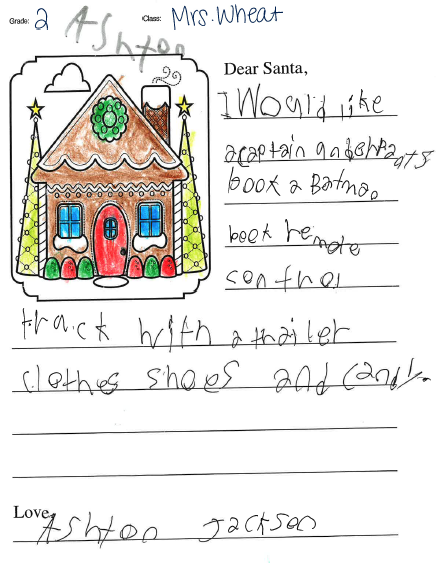 Grade: 2 Ashton Class: Mrs. Wheat
Dear Santa,
I Would like
a captain underpants
book a Batman
book remote
control
truck with a trailer
clothes shoes and candy
Love,
Ashton Jackson